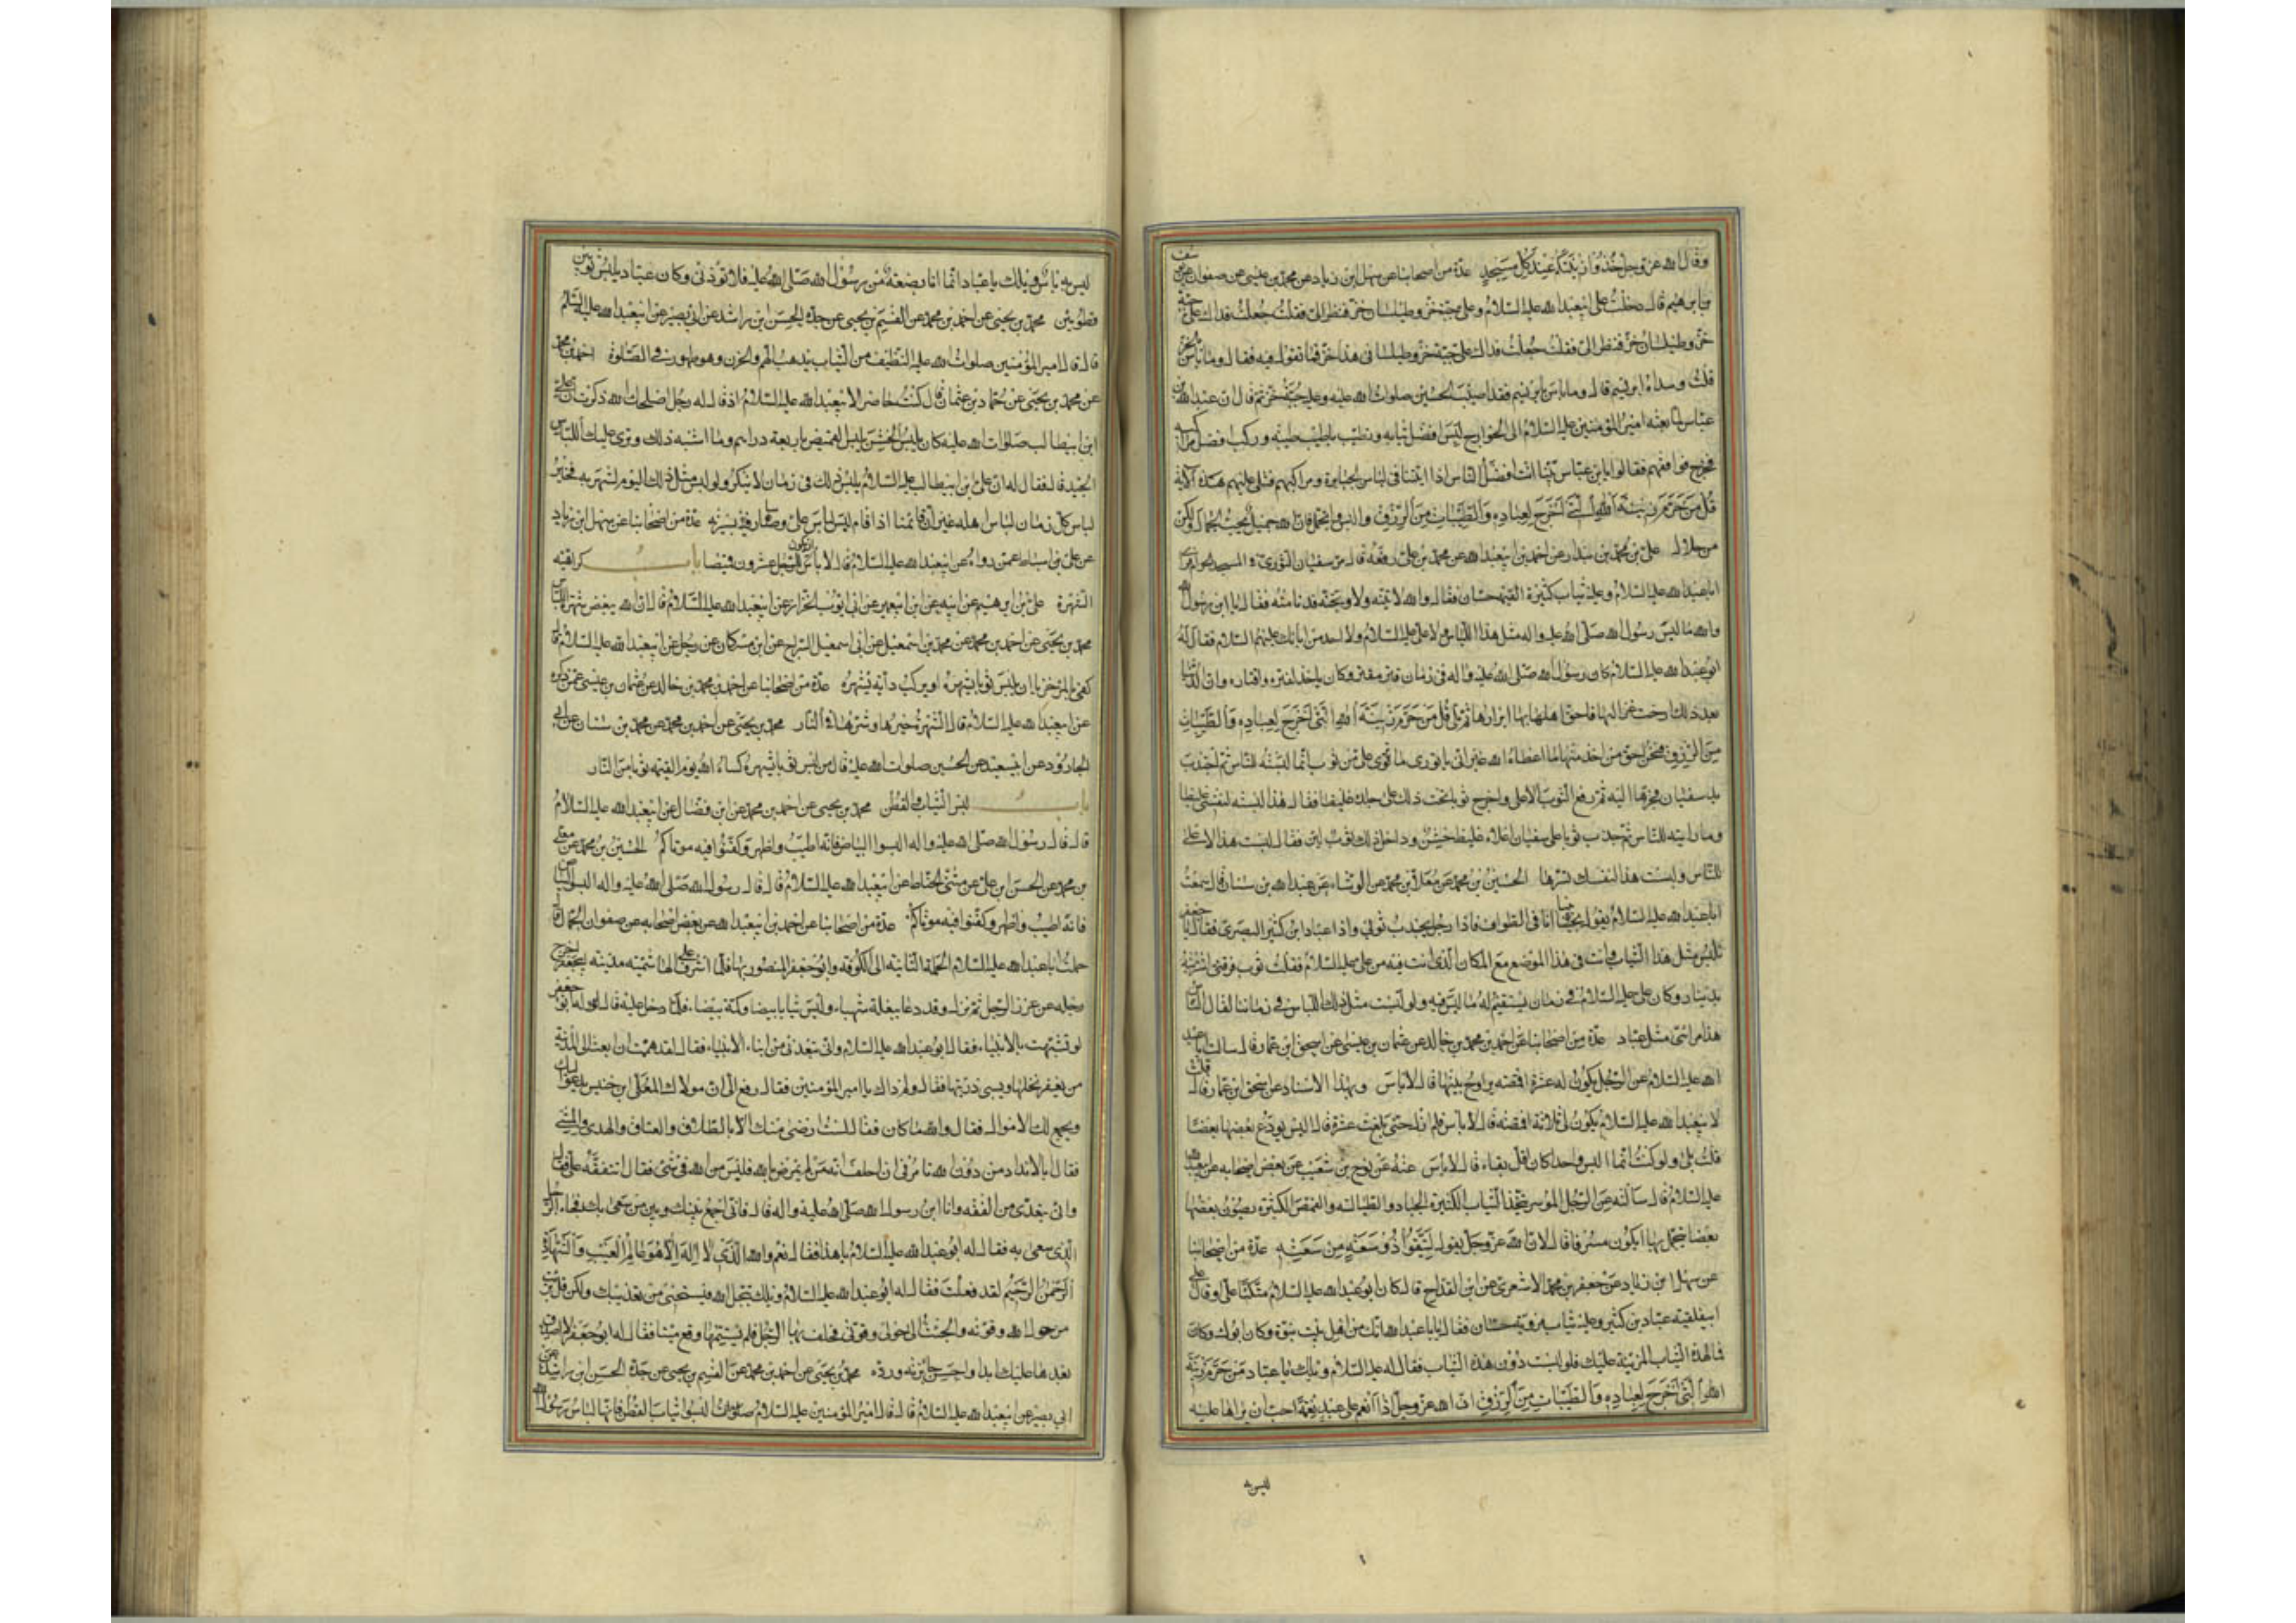 وقال الله عز وجل خذوا زينتكم عند كل مسجد عدة من اصحابنا عن سهل ابن زياد عن محمد بن عيسى عن صفوان عن يوسف
بن ابرهيم قال دخلت على ابيعبدالله عليه السلام وعلى جبة خز وطيلسان خز فنظر الى فقلت جعلت فداك على جبة
خز وطيلسان خز فنظر الى فقلت جعلت فداك على جبة خز وطيلسانى هذا خز فما تقول فيه فقال وما باس بالخز
قلت وسداه ابريسم قال وما باس بابريسم فقد اصيب الحسين صلوات الله عليه وعليه جبة خز ثم قال ان عبدالله بن
عباس لما بعثه امير المؤمنين عليه السلام الى الخوارج لبس افضل ثيابه وتطيب باطيب طيبه وركب افضل مراكبه
فخرج فواقفهم فقالوا يابن عباس بينا انت افضل الناس اذا اتيتنا فى لباس الجبابرة ومراكبهم فتلى عليهم هذه الآية
قل من حرم زينة الله التى اخرج لعباده والطيبات من الرزق والبس واتجمل فان الله جميل يحب الجمال وليكن
من حلال على بن محمد بن بندار عن احمد بن ابيعبدالله عن محمد بن على رفعه قال مر سفيان الثورى فى المسجد الحرام فراى
اباعبدالله عليه السلام وعليه ثياب كثيرة القيمة حسان فقال والله لاتينه ولاوبخنه فدنا منه فقال يا ابن رسول الله
والله ما لبس رسول الله صلى الله عليه واله مثل هذا اللباس ولا على عليه السلام ولا احد من ابائك عليهم السلام فقال له
ابوعبدالله عليه السلام كان رسول الله صلى الله عليه واله فى زمان قتر مقتر وكان ياخذ لقتره واقتاره وان الدنيا
بعد ذلك ارخت عزاليها فاحق اهلها بها ابرارها ثم تلى قل من حرم زينة الله التى اخرج لعباده والطيبات
من الرزق فنحن احق من اخذ منها ما اعطاه الله غير انى ياثورى ما ترى على من ثوب انما البسته للناس ثم اجتذب
يد سفيان فجرها اليه ثم رفع الثوب الاعلى واخرج ثوبا تحت ذلك على جلده غليظا فقال هذا لبسته لنفسى غليظا
وما رايته للناس ثم جذب ثوبا على سفيان اعلاه غليظ خشن وداخل ذلك ثوب لين فقال لبست هذا الاعلى
للناس ولبست هذا لنفسك تسرها الحسين بن محمد عن معلى بن محمد عن الوشاء عن عبدالله بن سنان قال سمعت
اباعبدالله عليه السلام يقول بينا انا فى الطواف فاذا رجل يجذب ثوبى واذا عباد ابن كثير البصرى فقال يا جعفر
تلبس مثل هذا الثياب وانت فى هذا الموضع مع المكان الذى انت فيه من على عليه السلام فقلت ثوب فرقبى اشتريته
بدينار وكان على عليه السلام فى زمان يستقيم له ما لبس فيه ولو لبست مثل ذلك اللباس فى زماننا لقال الناس
هذا مرائى مثل عباد عدة من اصحابنا عن احمد بن محمد بن خالد عن عثمان بن عيسى عن اسحق ابن عمار قال سالت اباعبد
الله عليه السلام عن الرجل يكون له عشرة اقمصه يراوح بينها قال لاباس وبهذا الاسناد عن اسحق ابن عمار قال قلت
لابيعبدالله عليه السلام يكون لى ثلاثة اقمصه قال لاباس فلم ازل حتى بلغت عشرة قال اليس يودع بعضها بعضا
قلت بلى ولو كنت انما البس واحدا كان اقل بقاء قال لاباس عنه عن نوح بن شعيب عن بعض اصحابه عن ابيعبدالله
عليه السلام قال سألته عن الرجل الموسر يتخذ الثياب الكثيرة الجياد والطيالسه والقمص الكثيرة يصون بعضها
بعضا يتجمل بها ايكون مسرفا قال لا ان الله عز وجل يقول لينفق ذو سعة من سعته عدة من اصحابنا
عن سهل ابن زياد عن جعفر بن محمد الاشعرى عن ابن القداح قال كان ابوعبدالله عليه السلام متكئا على او قال على
ابى فلقيه عباد بن كثير وعليه ثياب مروية حسان فقال يا باعبدالله انك من اهل بيت نبوة وكان ابوك وكان
فما لهذه الثياب المزينة عليك فلو لبست دون هذه الثياب فقال له عليه السلام ويلك يا عباد من حرم زينة
الله التى اخرج لعباده والطيبات من الرزق ان الله عز وجل اذا انعم على عبد نعمة احب ان يراها عليه
ليس به
ليس به باس ويلك يا عباد انما انا بضعة من رسول الله صلى الله عليه فلا تؤذنى وكان عباد يلبس ثوبين
قطويين محمد بن يحيى عن احمد بن محمد عن القسيم بن يحيى عن جده الحسن ابن راشد عن ابى بصير عن ابيعبدالله عليه السلم
قال قال امير المؤمنين صلوات الله عليه النظيف من الثياب يذهب الهم والحزن وهو طهور فى الصلوة احمد بن محمد
عن محمد بن يحيى عن حماد بن عثمان قال كنت حاضرا لابيعبدالله عليه السلام اذ قال له رجل اصلحك الله ذكرت ان على
ابن ابيطالب صلوات الله عليه كان يلبس الخشن يلبس القميص باربعة دراهم وما اشبه ذلك ونرى عليك اللباس
الجيد قال فقال له ان على بن ابيطالب عليه السلام يلبس ذلك فى زمان لاينكر ولو لبس مثل ذلك اليوم لشهر به فخير
لباس كل زمان لباس اهله غير ان قائمنا اذا قام لبس لباس على وسار فيه بسيرته عدة من اصحابنا عن سهل ابن زياد
عن على بن اسباط عمن رواه عن ابيعبدالله عليه السلام قال لا باس ان يكون للرجل عشرون قميصا باب كراهية
الشهرة على بن ابرهيم عن ابيه عن ابن ابيعمير عن ابى ايوب الخزاز عن ابيعبدالله عليه السلام قال ان الله يبغض شهرة اللباس
محمد بن يحيى عن احمد بن محمد عن محمد بن اسمعيل عن ابى اسمعيل السراج عن ابن مسكان عن رجل عن ابيعبدالله عليه السلام قال
كفى بالمرء خزيا ان يلبس ثوبا يشهره او يركب دابة يشهره عدة من اصحابنا عن احمد بن محمد بن خالد عن عثمان بن عيسى عمن ذكره
عن ابيعبدالله عليه السلام قال الشهرة خيرها وشرها فى النار محمد بن يحيى عن احمد بن محمد عن محمد بن سنان عن ابى
الجارود عن ابيسعيد عن الحسين صلوات الله عليه قال من لبس ثوبا يشهره كساه الله يوم القيمة ثوبا من النار
باب لبس الثياب والقطن محمد بن يحيى عن احمد بن محمد عن ابن فضال عن ابيعبدالله عليه السلام
قال قال رسول الله صلى الله عليه واله البسوا البياض فانه اطيب واطهر وكفنوا فيه موتاكم الحسين بن محمد عن معلى
بن محمد عن الحسن بن على عن مثنى الحناط عن ابيعبدالله عليه السلام قال قال رسول الله صلى الله عليه واله البسوا البياض
فانه اطيب واطهر وكفنوا فيه موتاكم عدة من اصحابنا عن احمد بن ابيعبدالله عن بعض اصحابه عن صفوان الجمال قال
حملت اباعبدالله عليه السلام الحملة الثانية الى الكوفة وابوجعفر المنصور بها فلما اشرف على الهاشمية مدينة ابيجعفر اخرج
رجله عن غرز الرجل ثم نزل وقد دعا ببغلة شهباء ولبس ثيابا بيضا وكمة بيضاء فلما دخل عليه قال له ابو جعفر
لو تشبهت بالانبياء فقال ابوعبدالله عليه السلام وانى تبعدنى من ابناء الانبياء فقال لقد هممت ان ابعث الى المدينة
من يعقر نخلها ويسبى ذريتها فقال ولم ذاك يا امير المؤمنين فقال رفع الى ان مولاك المعلى ابن خنيس يدعو اليك
ويجمع لك الاموال فقال والله ما كان فقال لست ارضى منك الا بالطلاق والعتاق والهدى والمشى
فقال بالانداد من دون الله تامرنى ان احلف انه من لم يرض بالله فليس من الله فى شئ فقال اتتفقه على فقال
وانى تبعدنى من الفقه وانا ابن رسول الله صلى الله عليه واله قال فانى اجمع بينك وبين من سعى بك فجاء الرجل
الذى سعى به فقال له ابوعبدالله عليه السلام يا هذا فقال نعم والله الذى لا اله الا هو عالم الغيب والشهادة
الرحمن الرحيم لقد فعلت فقال له ابوعبدالله عليه السلام ويلك تبجل الله فيستحيى من تعذيبك ولكن قل برئت
من حول الله وقوته والجئت الى حولى وقوتى فحلف بها الرجل فلم يستتمها وقع ميتا فقال له ابوجعفر لا اصدق
بعدها عليك ابدا واحسن جايزته ورده محمد بن يحيى عن احمد بن محمد عن القسيم بن يحيى عن جده الحسن ابن راشد عن
ابى بصير عن ابيعبدالله عليه السلام قال قال امير المؤمنين عليه السلام البسوا ثياب القطن فانها لباس رسول الله